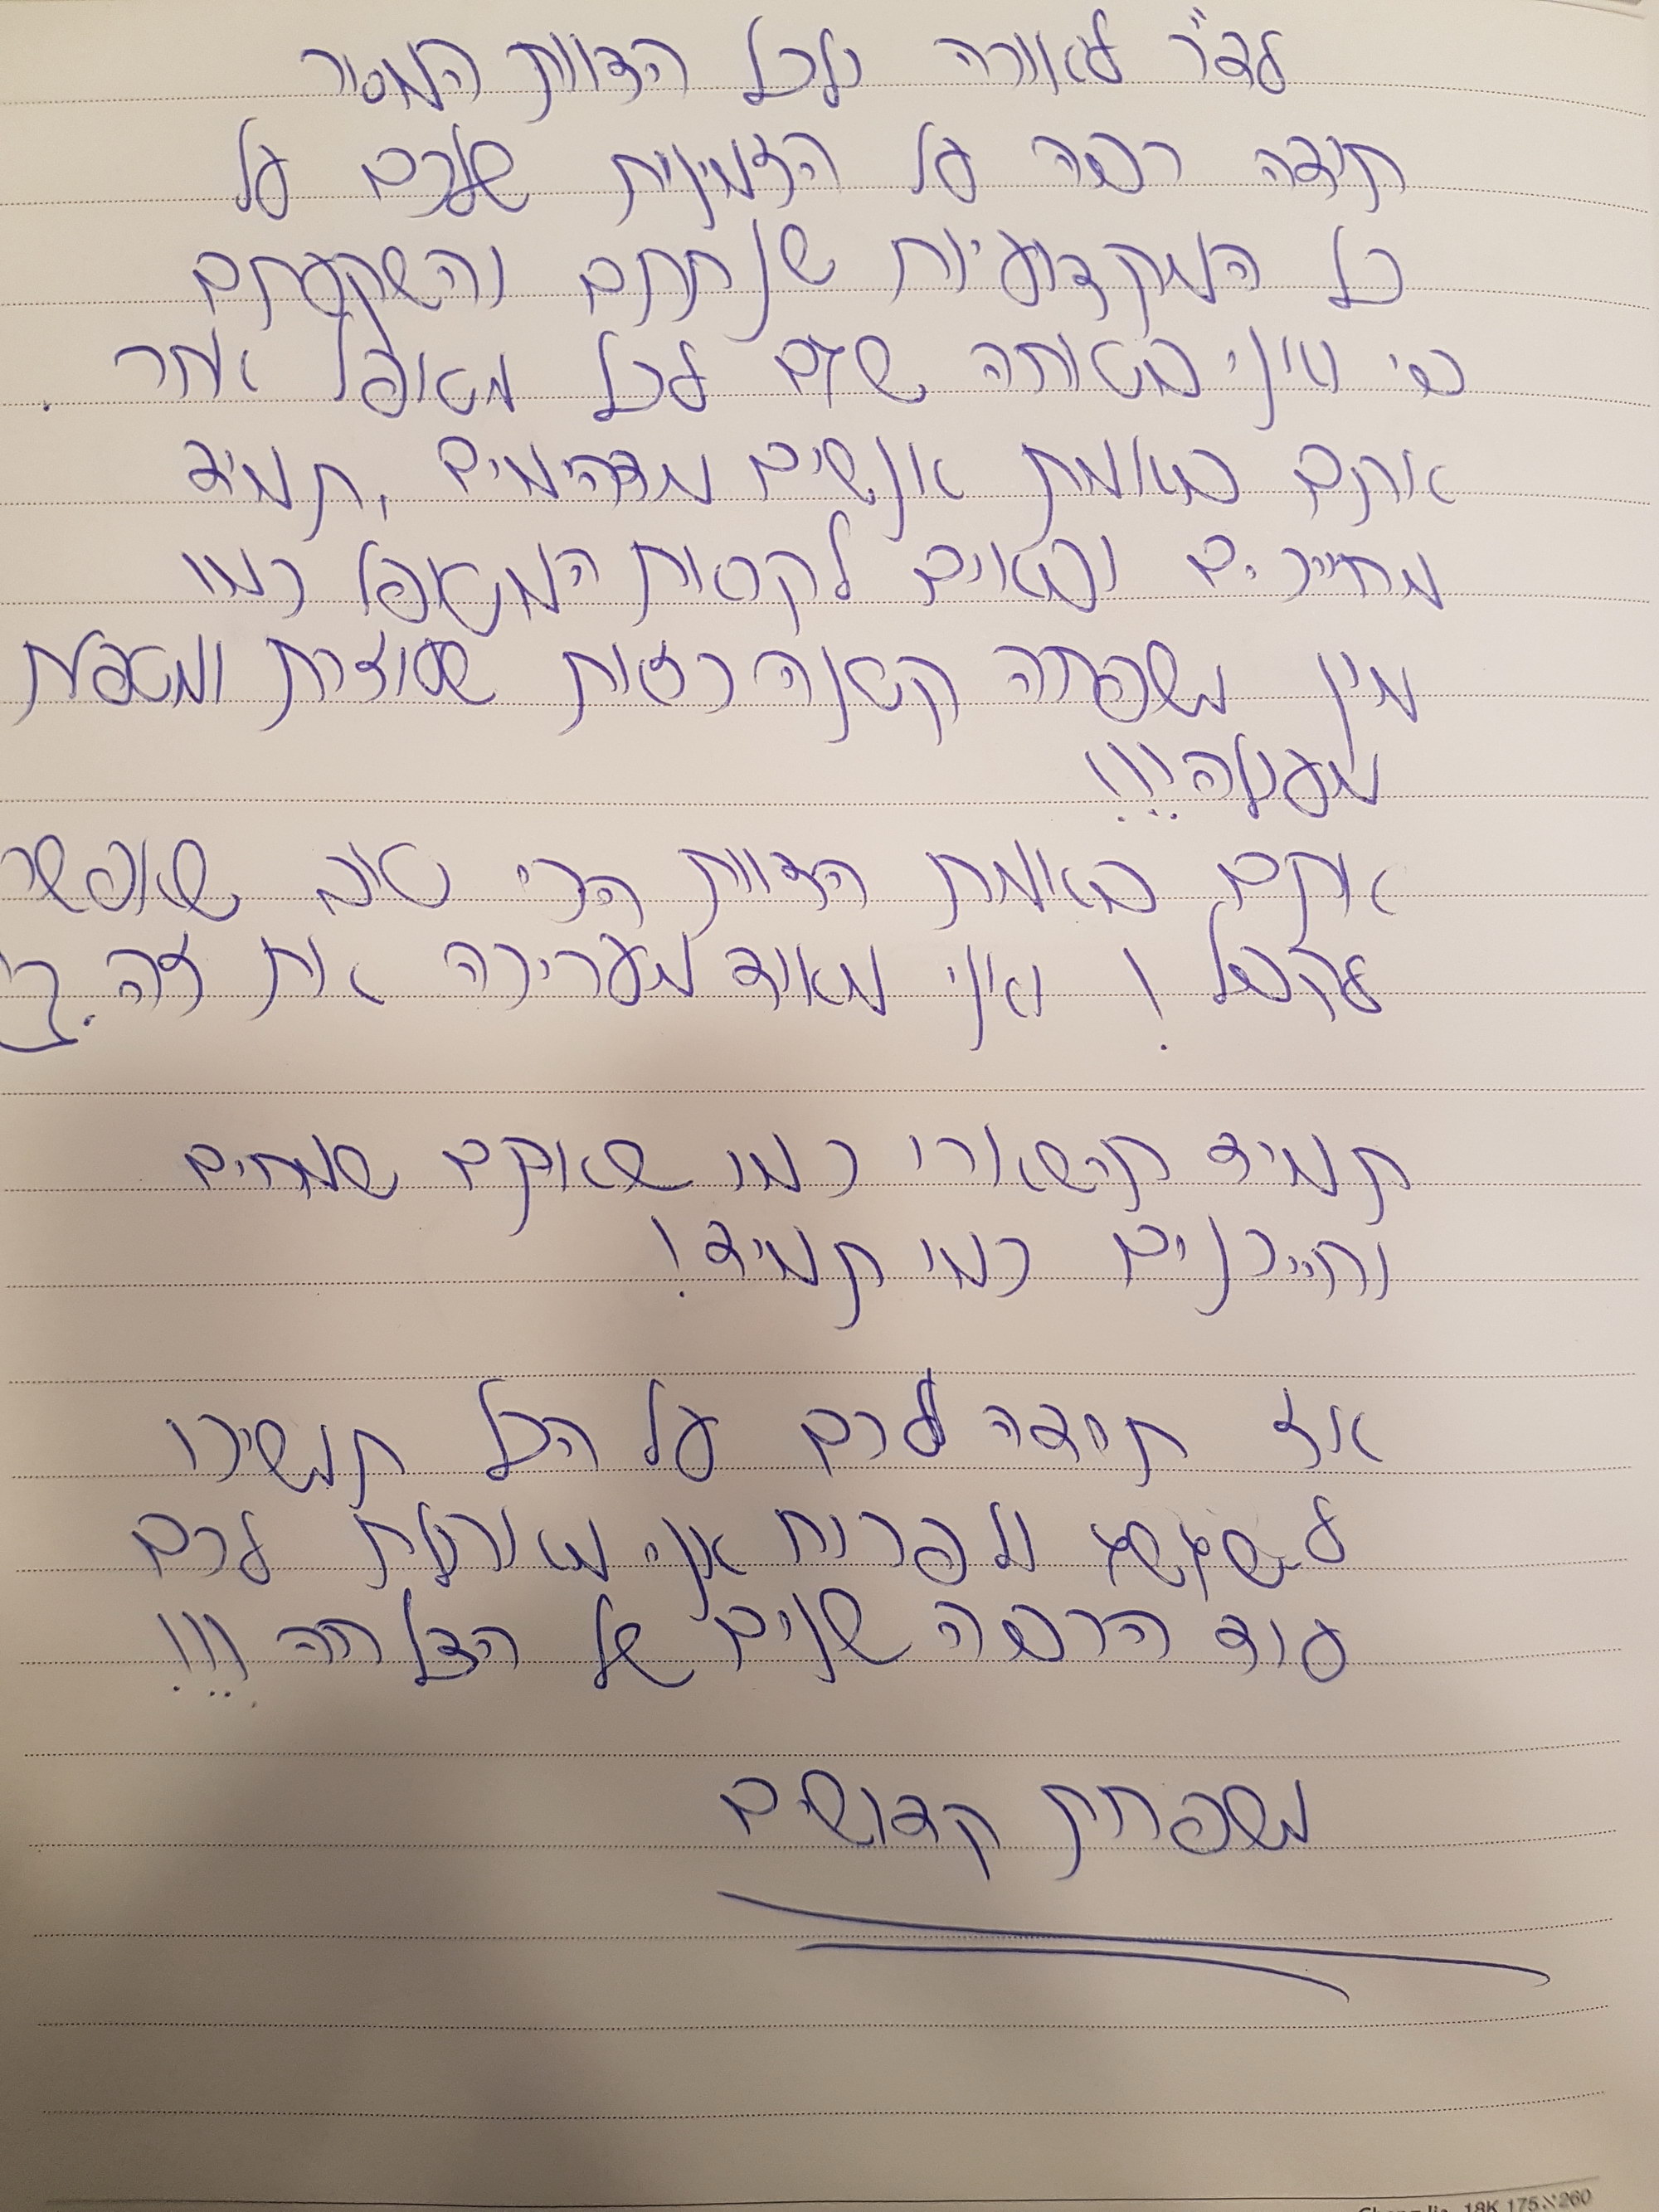 לד"ר לאורה ולכל הצוות המסור
תודה רבה על הזמינות שלכם על
כל המקצועיות שנתתם והשקעתם
בי ואני בטוחה שגם לכל מטופל אחר.
אתם באמת אנשים מדהימים, תמיד
מחייכים ובאים לקראת המטופל כמו
מין משפחה קטנה כזאת שעוזרת ומטפלת
מעולה!!!
אתם באמת הצוות הכי טוב שאפשר
לקבל! ואני מאוד מעריכה את זה.
תמיד תהשארו כמו שאתם שמחים
וחייכנים כמו תמיד!
אז תודה לכם על הכל תמשיכו
לשגשג ולפרוח אני מאחלת לכם
עוד הרבה שנים של הצלחה!!!
משפחת קדושים
18K 175×260